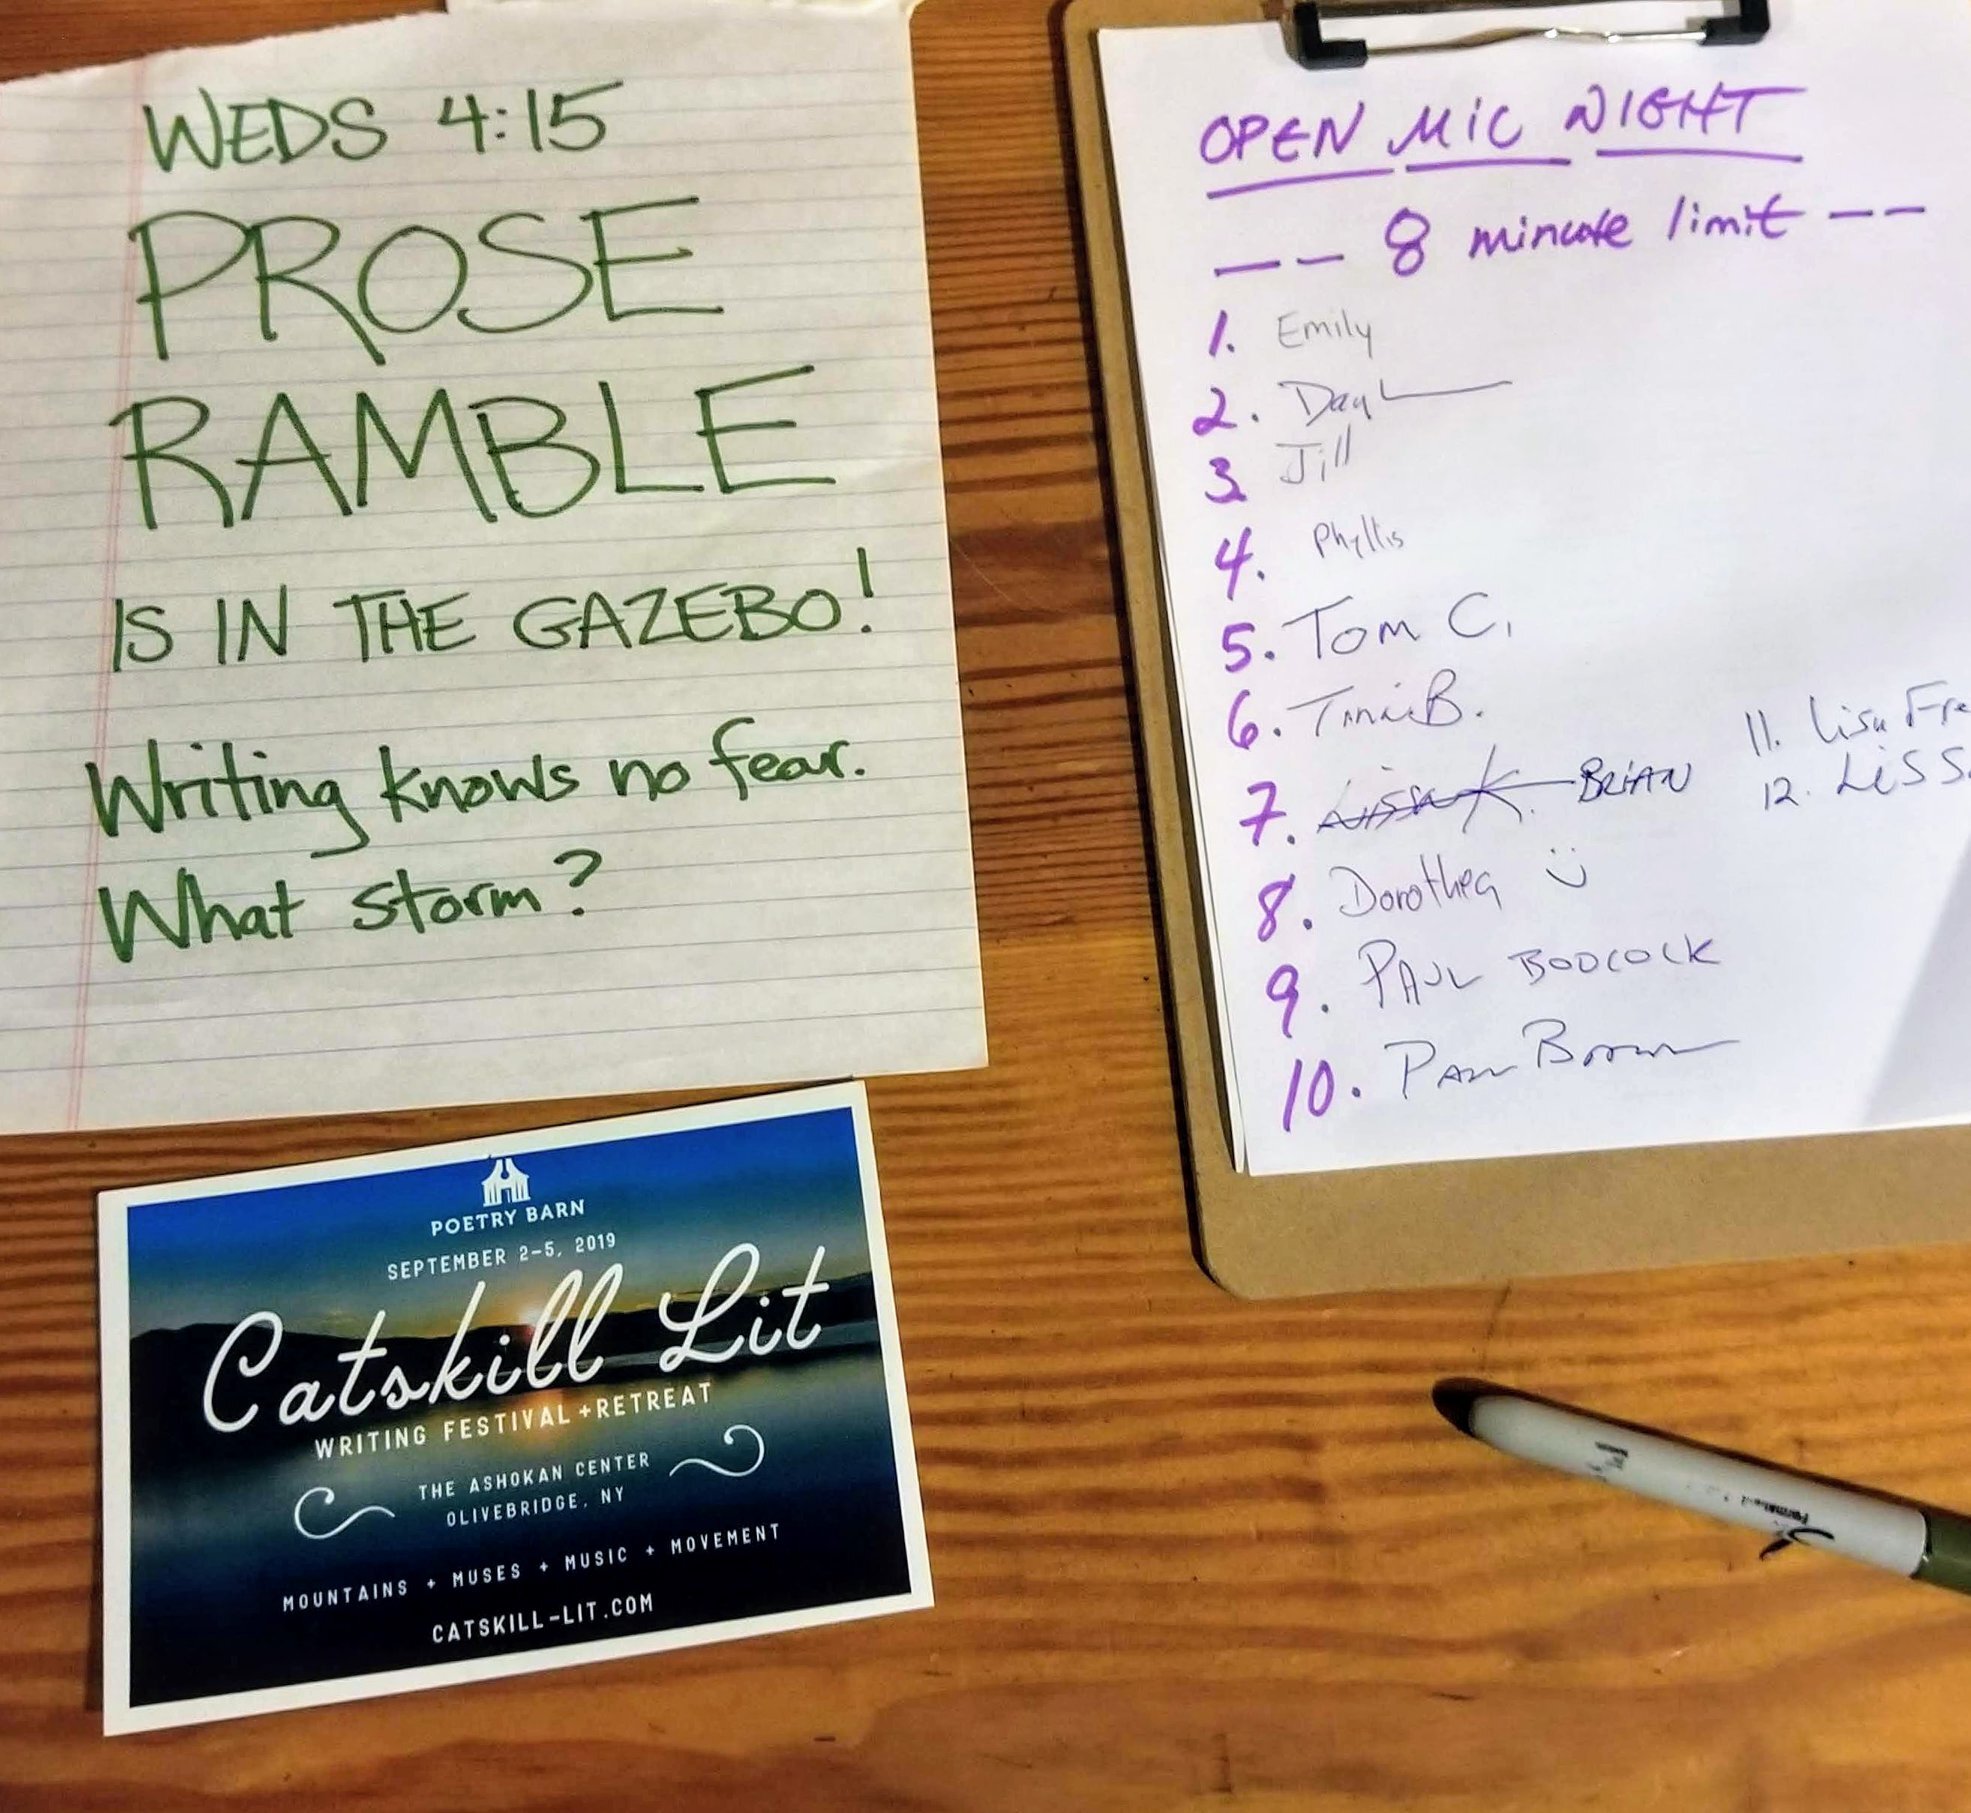 WEDS 4:15
PROSE
RAMBLE
IS IN THE GAZEBO!
Writing knows no fear.
What storm?
OPEN MIC NIGHT
-- 8 minute limit --
1. Emily
2.
3 Jill
4. Phyllis
5. Tom C.
6. B.
7. Lisa K. BRIAN
8. Dorothea
9. PAUL BODCOCK
10.
11. Lisa Fre
12. LiSS
POETRY BARN
SEPTEMBER 2-5, 2019
Catskill Lit
WRITING FESTIVAL + RETREAT
THE ASHOKAN CENTER
OLIVEBRIDGE, NY
MOUNTAINS + MUSES + MUSIC + MOVEMENT
CATSKILL-LIT.COM